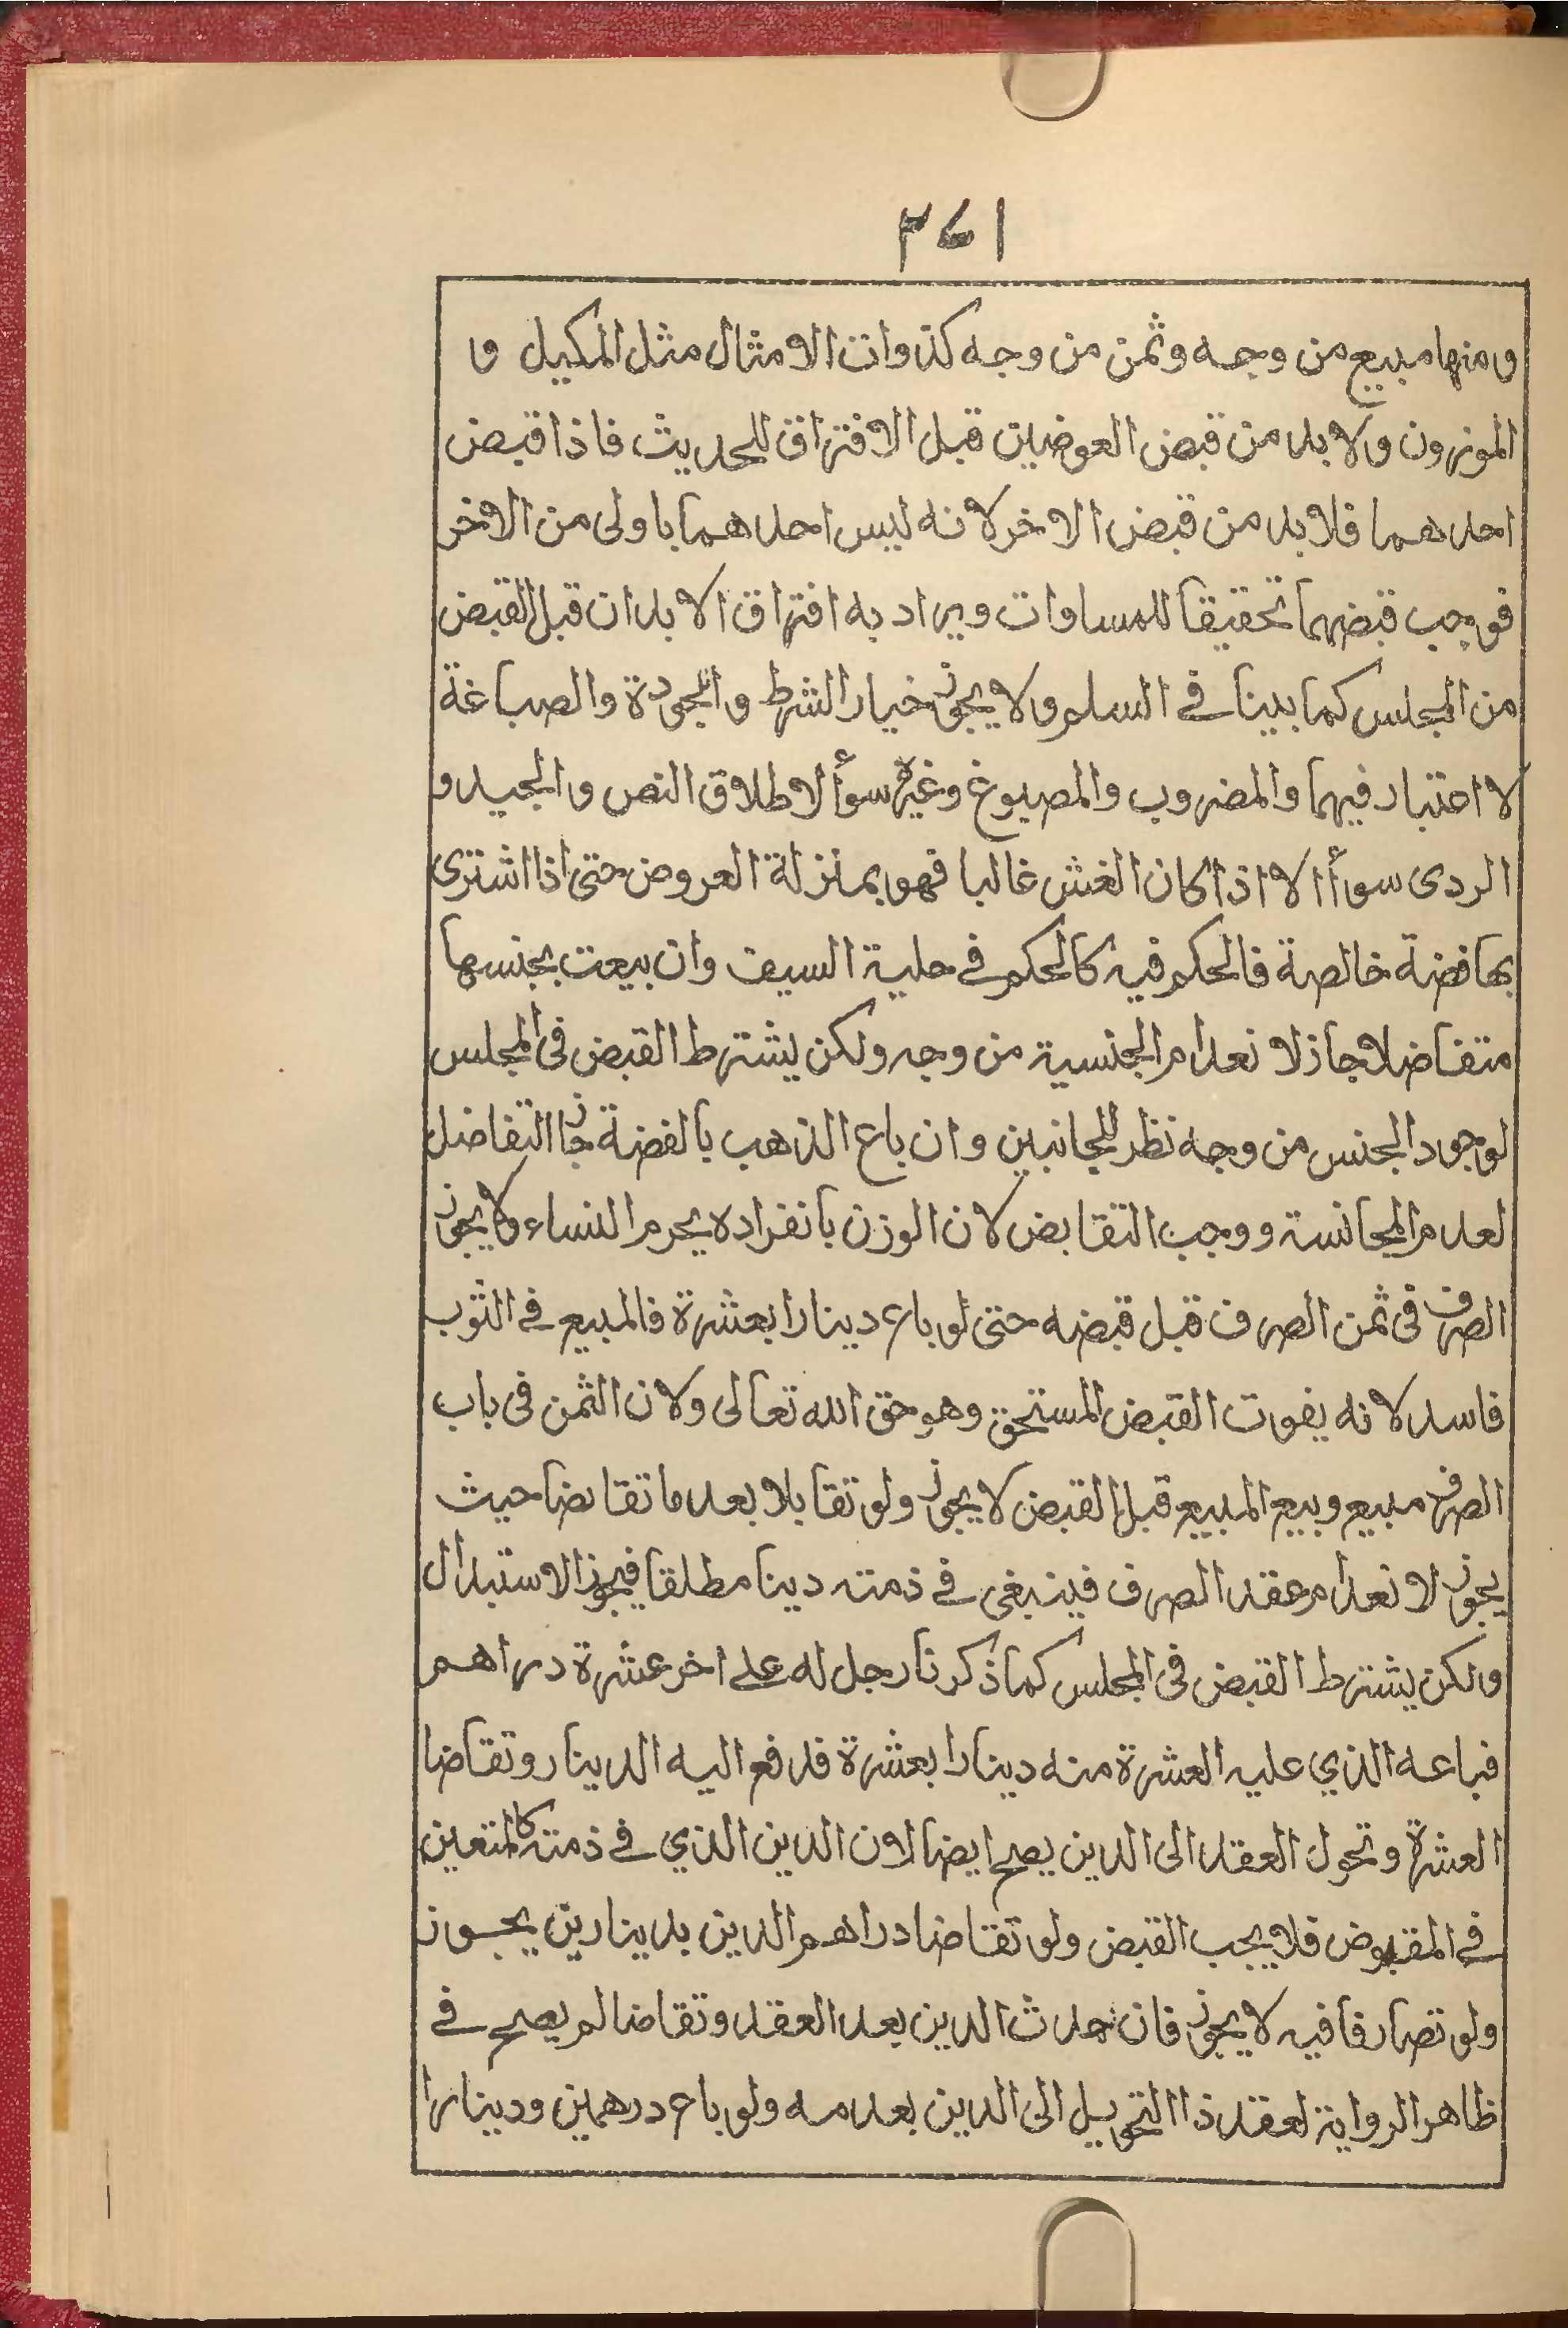 ٣٤١
ومنها مبيع من وجه وثمن من وجه كذوات الامثال مثل المكيل و
الموزون ولا بد من قبض العوضين قبل الافتراق للحديث فاذا قبض
احدهما فلا بد من قبض الاخر لانه ليس احدهما باولى من الاخر
فوجب قبضهما تحقيقا للمساوات ويراد به افتراق الابدان قبل القبض
من المجلس كما بينا في السلم ولا يجوز خيار الشرط والجودة والصباغة
لا اعتبار فيهما والمضروب والمصبوغ وغيره سوأ لاطلاق النص والجيد و
الردى سوأ الا اذا كان الغش غالبا فهو بمنزلة العروض حتى اذا اشترى
بها فضة خالصة فالحكم فيه كالحكم في حلية السيف وان بيعت بجنسها
متفاضلا جاز لانعدام الجنسية من وجه ولكن يشترط القبض فى المجلس
لوجود الجنس من وجه نظر للجانبين وان باع الذهب بالفضة جاز التفاضل
لعدم المجانسة ووجب التقابض لان الوزن بانفراده يحرم النساء ولا يجوز
الصرف فى ثمن الصرف قبل قبضه حتى لو باع دينارا بعشرة فالمبيع في الثوب
فاسد لانه يفوت القبض المستحق وهو حق الله تعالى ولان الثمن فى باب
الصرف مبيع وبيع المبيع قبل القبض لا يجوز ولو تقابلا بعد ما تقابضا حيث
يجوز لانعدام عقد الصرف فينبغى في ذمته دينا مطلقا فيجوز الاستبدال
ولكن يشترط القبض فى المجلس كما ذكرنا رجل له على اخر عشرة دراهم
فباعه الذي عليه العشرة منه دينارا بعشرة فدفع اليه الدينار وتقاضا
العشرة وتحول العقد الى الدين يصح ايضا لان الدين الذي في ذمته كالمتعين
في المقبوض فلا يجب القبض ولو تقاضا دراهم الدين بدينارين يجوز
ولو تصارفا فيه لا يجوز فان حدث الدين بعد العقد وتقاضا لم يصح في
ظاهر الرواية لعقد ذا التحويل الى الدين بعدمه ولو باع درهمين ودينارا